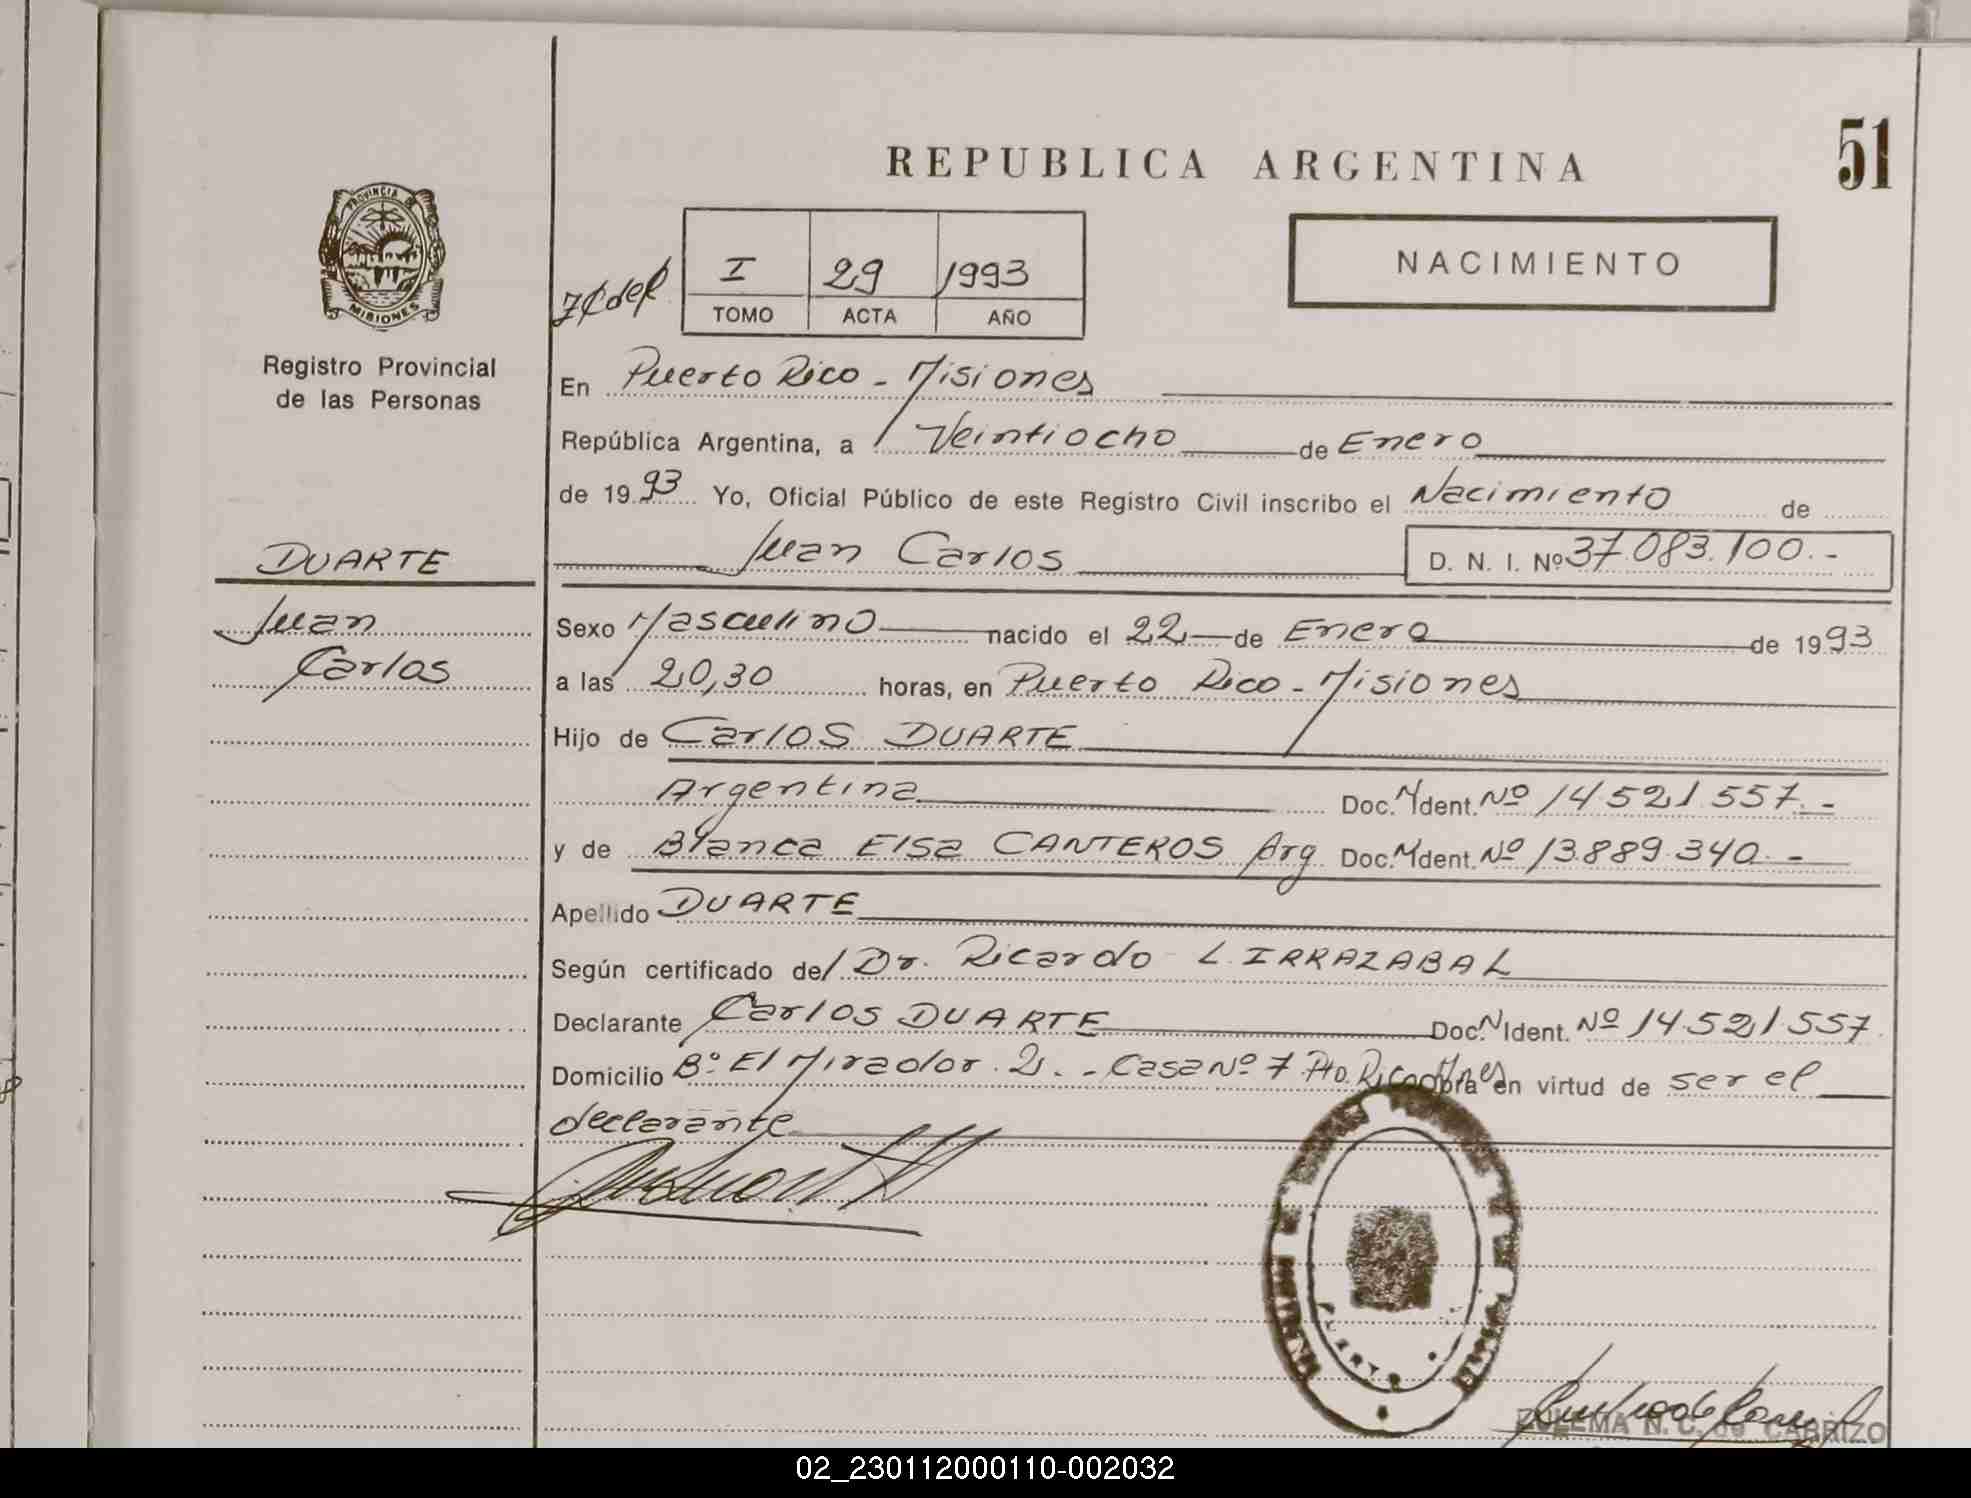 51
REPUBLICA ARGENTINA
PROVINCIA DE
MISIONES
Registro Provincial
de las Personas
I 29 1993
TOMO ACTA AÑO
NACIMIENTO
En Puerto Rico - Misiones
República Argentina, a Veintiocho de Enero
de 19 93 Yo, Oficial Público de este Registro Civil inscribo el Nacimiento de
DUARTE
Juan Carlos D. N. I. Nº 37.083.100.-
Juan
Sexo Masculino nacido el 22 de Enero de 19 93
Carlos
a las 20,30 horas, en Puerto Rico - Misiones
Hijo de Carlos DUARTE
Argentina Doc. N Ident. Nº 14.521.557.-
y de Blanca Elsa CANTEROS Arg Doc. N Ident. Nº 13.889.340.-
Apellido DUARTE
Según certificado de/ Dr. Ricardo L. IRRAZABAL
Declarante Carlos DUARTE Doc. N Ident. Nº 14.521.557
Domicilio Bº. El Mirador 2. - Casa Nº 7 Pto. Rico Mnes obra en virtud de ser el
declarante
PUERTO
ZULEMA N. C. de CABRIZO
02_230112000110-002032